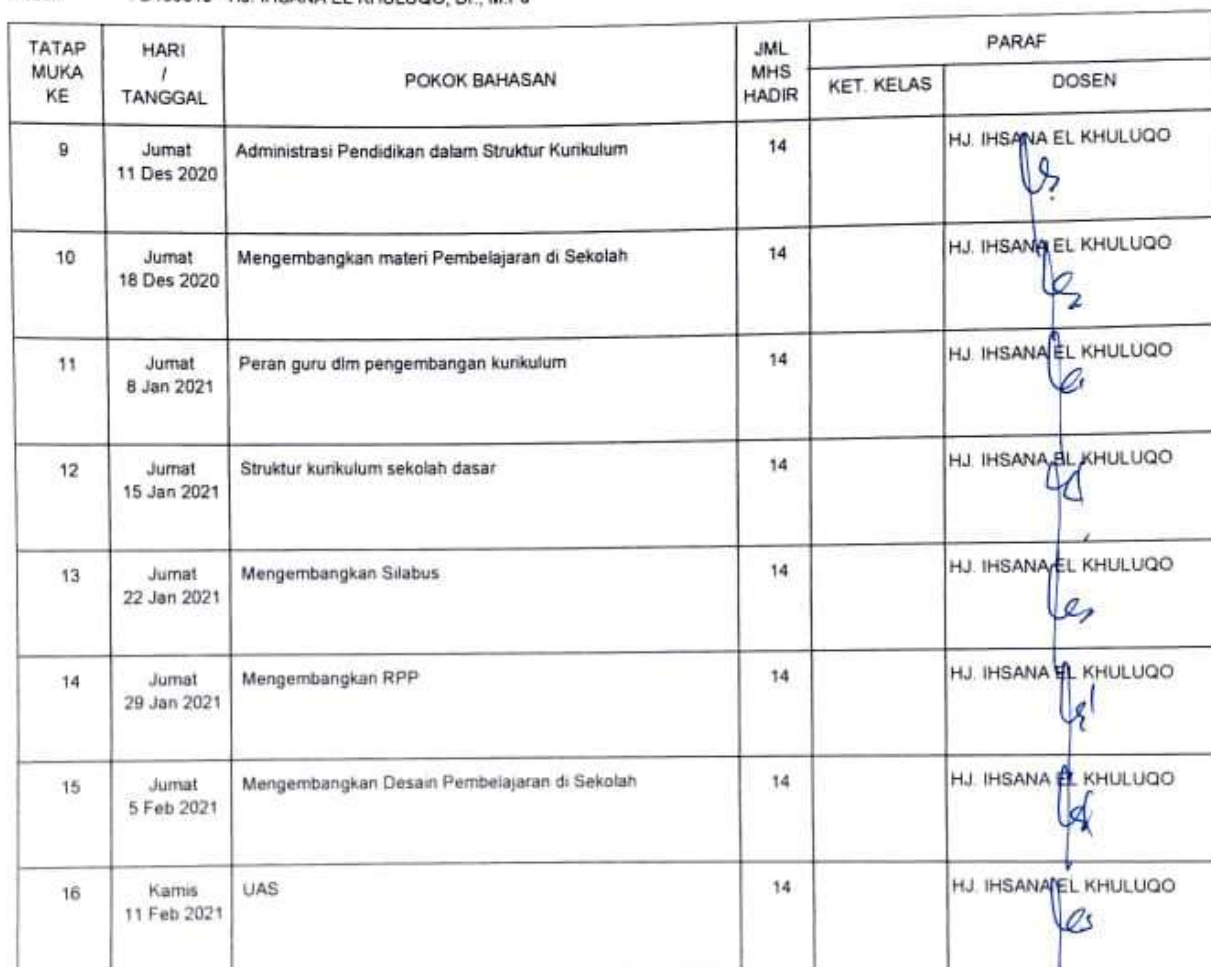 HJ. IHSANA EL KHULUQO, Dr., M.Pd
TATAP MUKA KE
HARI / TANGGAL
POKOK BAHASAN
JML MHS HADIR
PARAF
KET. KELAS
DOSEN
9
Jumat
11 Des 2020
Administrasi Pendidikan dalam Struktur Kurikulum
14
HJ. IHSANA EL KHULUQO
10
Jumat
18 Des 2020
Mengembangkan materi Pembelajaran di Sekolah
14
HJ. IHSANA EL KHULUQO
11
Jumat
8 Jan 2021
Peran guru dlm pengembangan kurikulum
14
HJ. IHSANA EL KHULUQO
12
Jumat
15 Jan 2021
Struktur kurikulum sekolah dasar
14
HJ. IHSANA EL KHULUQO
13
Jumat
22 Jan 2021
Mengembangkan Silabus
14
HJ. IHSANA EL KHULUQO
14
Jumat
29 Jan 2021
Mengembangkan RPP
14
HJ. IHSANA EL KHULUQO
15
Jumat
5 Feb 2021
Mengembangkan Desain Pembelajaran di Sekolah
14
HJ. IHSANA EL KHULUQO
16
Kamis
11 Feb 2021
UAS
14
HJ. IHSANA EL KHULUQO